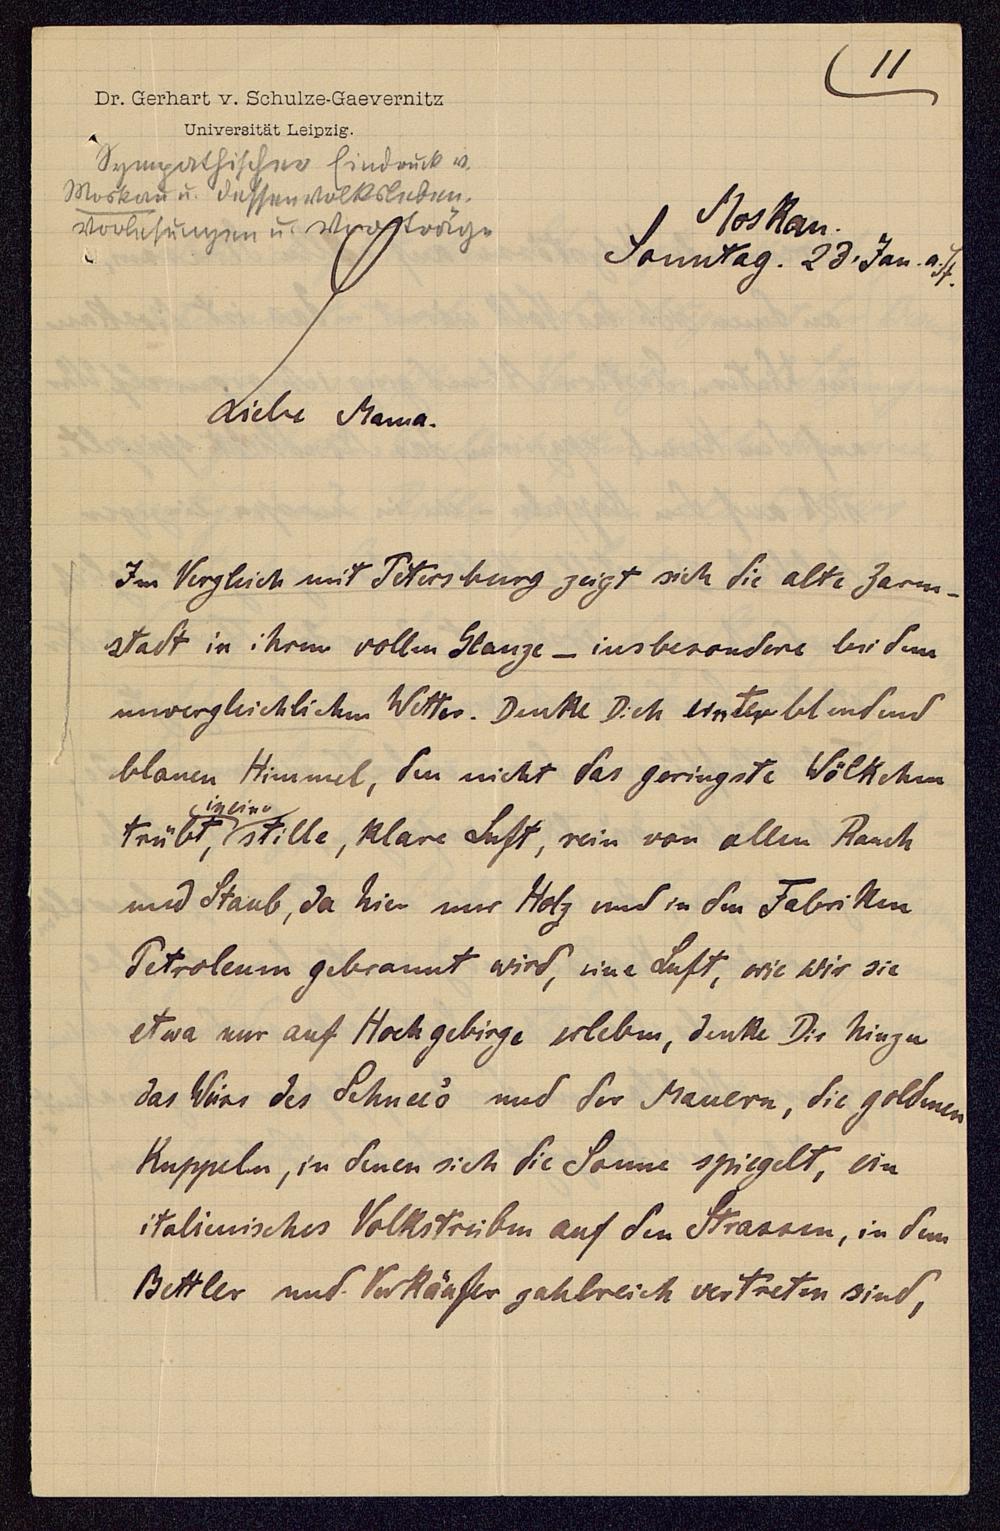 11
Dr. Gerhart v. Schulze-Gaevernitz
Universität Leipzig.
Sympathischer Eindruck v.
Moskau u. dessen Volksleben.
Vorlesungen u. Vorträge
Moskau.
Sonntag. 23. Jan. a. St.
Liebe Mama.
Im Vergleich mit Petersburg zeigt sich die alte Zaren-
stadt in ihrem vollen Glanze – insbesondere bei dem
unvergleichlichen Wetter. Denke Dich unter blendend
blauen Himmel, den nicht das geringste Wölkchen
trübt, in eine stille, klare Luft, rein von allen Rauch
und Staub, da hier nur Holz und in den Fabriken
Petroleum gebrannt wird, eine Luft, wie wir sie
etwa nur auf Hochgebirge erleben, denke Dir hinzu
das Weiss des Schnee's und der Mauern, die goldenen
Kuppeln, in denen sich die Sonne spiegelt, ein
italienisches Volkstreiben auf den Strassen, in dem
Bettler und Verkäufer zahlreich vertreten sind,